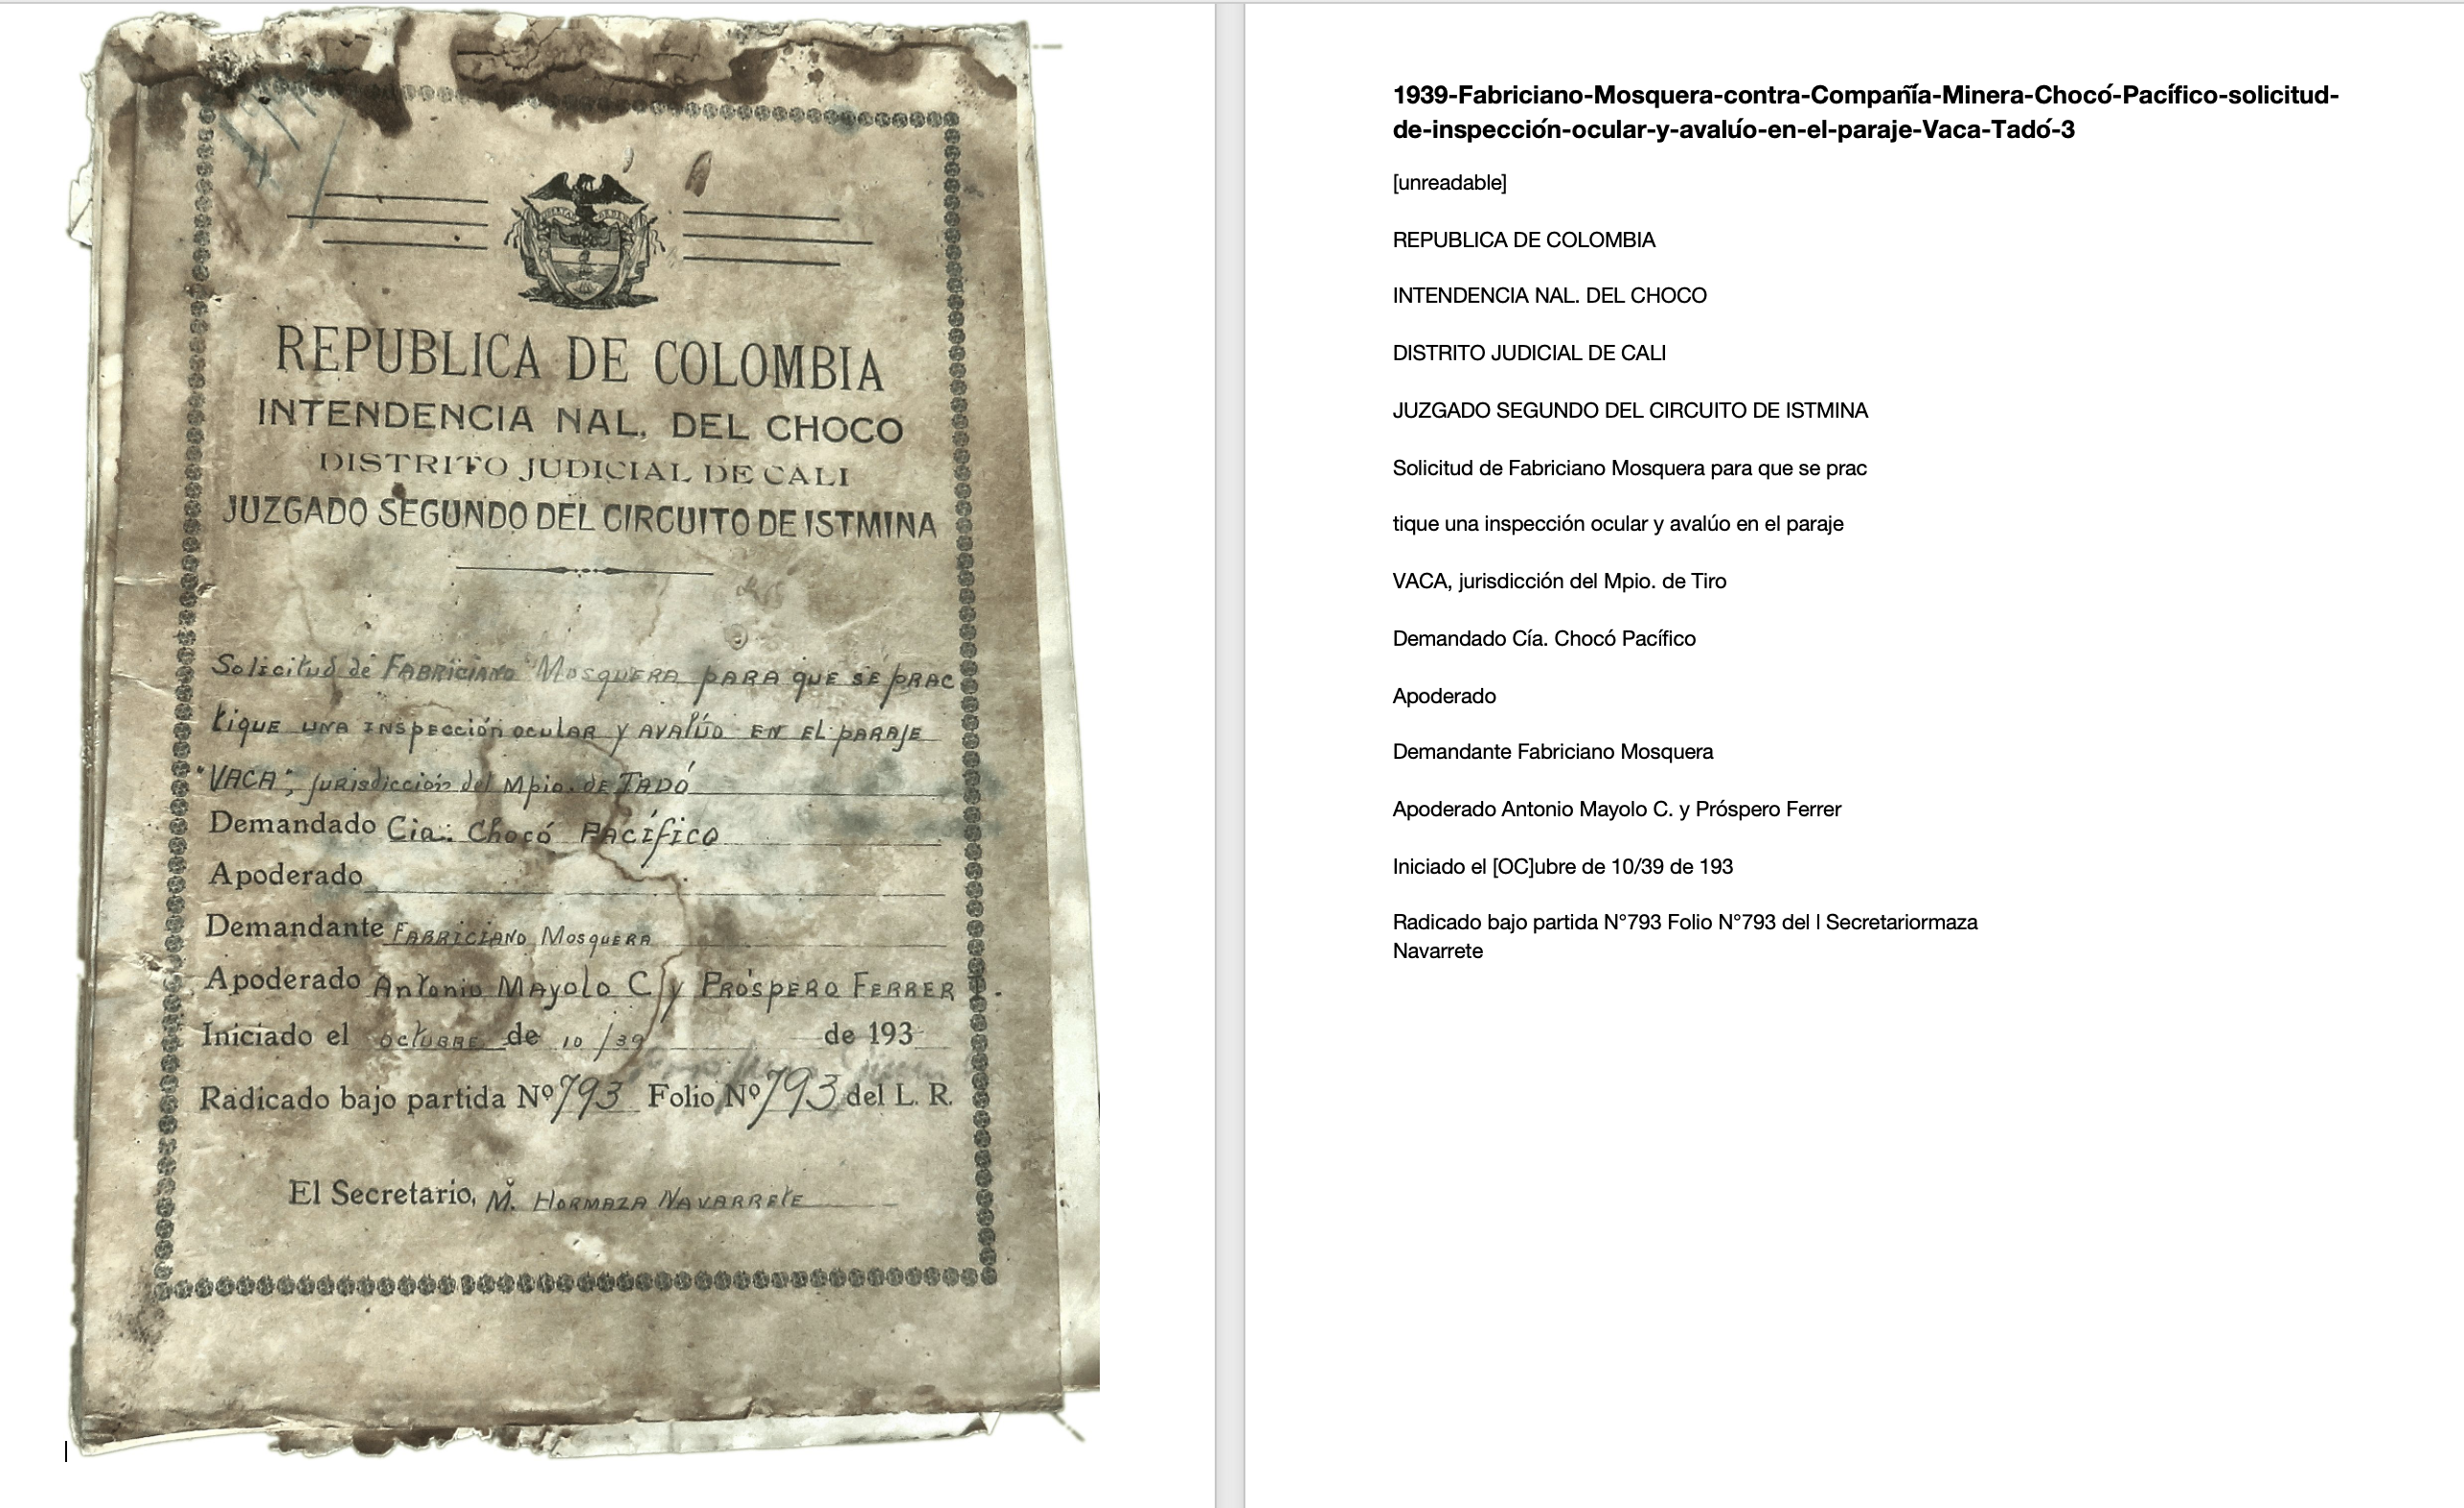 REPUBLICA DE COLOMBIA
INTENDENCIA NAL. DEL CHOCO
DISTRITO JUDICIAL DE CALI
JUZGADO SEGUNDO DEL CIRCUITO DE ISTMINA
Solicitud de FABRICIANO MOSQUERA PARA QUE SE PRAC
tique UNA INSpección ocular y AVALÚO EN EL PARAJE
"VACA", jurisdicción del Mpio. de TADÓ
Demandado Cia. Chocó PACÍFICO
Apoderado
Demandante FABRICIANO MOSQUERA
Apoderado Antonio MAYOLO C. y PRÓSPERO FERRER.
Iniciado el OCTUBRE de 10/39 de 193
Radicado bajo partida Nº 793 Folio Nº 793 del L. R.
El Secretario, M. HORMAZA NAVARRETE
1939-Fabriciano-Mosquera-contra-Compañía-Minera-Chocó-Pacífico-solicitud-
de-inspección-ocular-y-avalúo-en-el-paraje-Vaca-Tadó-3
[unreadable]
REPUBLICA DE COLOMBIA
INTENDENCIA NAL. DEL CHOCO
DISTRITO JUDICIAL DE CALI
JUZGADO SEGUNDO DEL CIRCUITO DE ISTMINA
Solicitud de Fabriciano Mosquera para que se prac
tique una inspección ocular y avalúo en el paraje
VACA, jurisdicción del Mpio. de Tiro
Demandado Cía. Chocó Pacífico
Apoderado
Demandante Fabriciano Mosquera
Apoderado Antonio Mayolo C. y Próspero Ferrer
Iniciado el [OC]ubre de 10/39 de 193
Radicado bajo partida N°793 Folio N°793 del l Secretariormaza
Navarrete